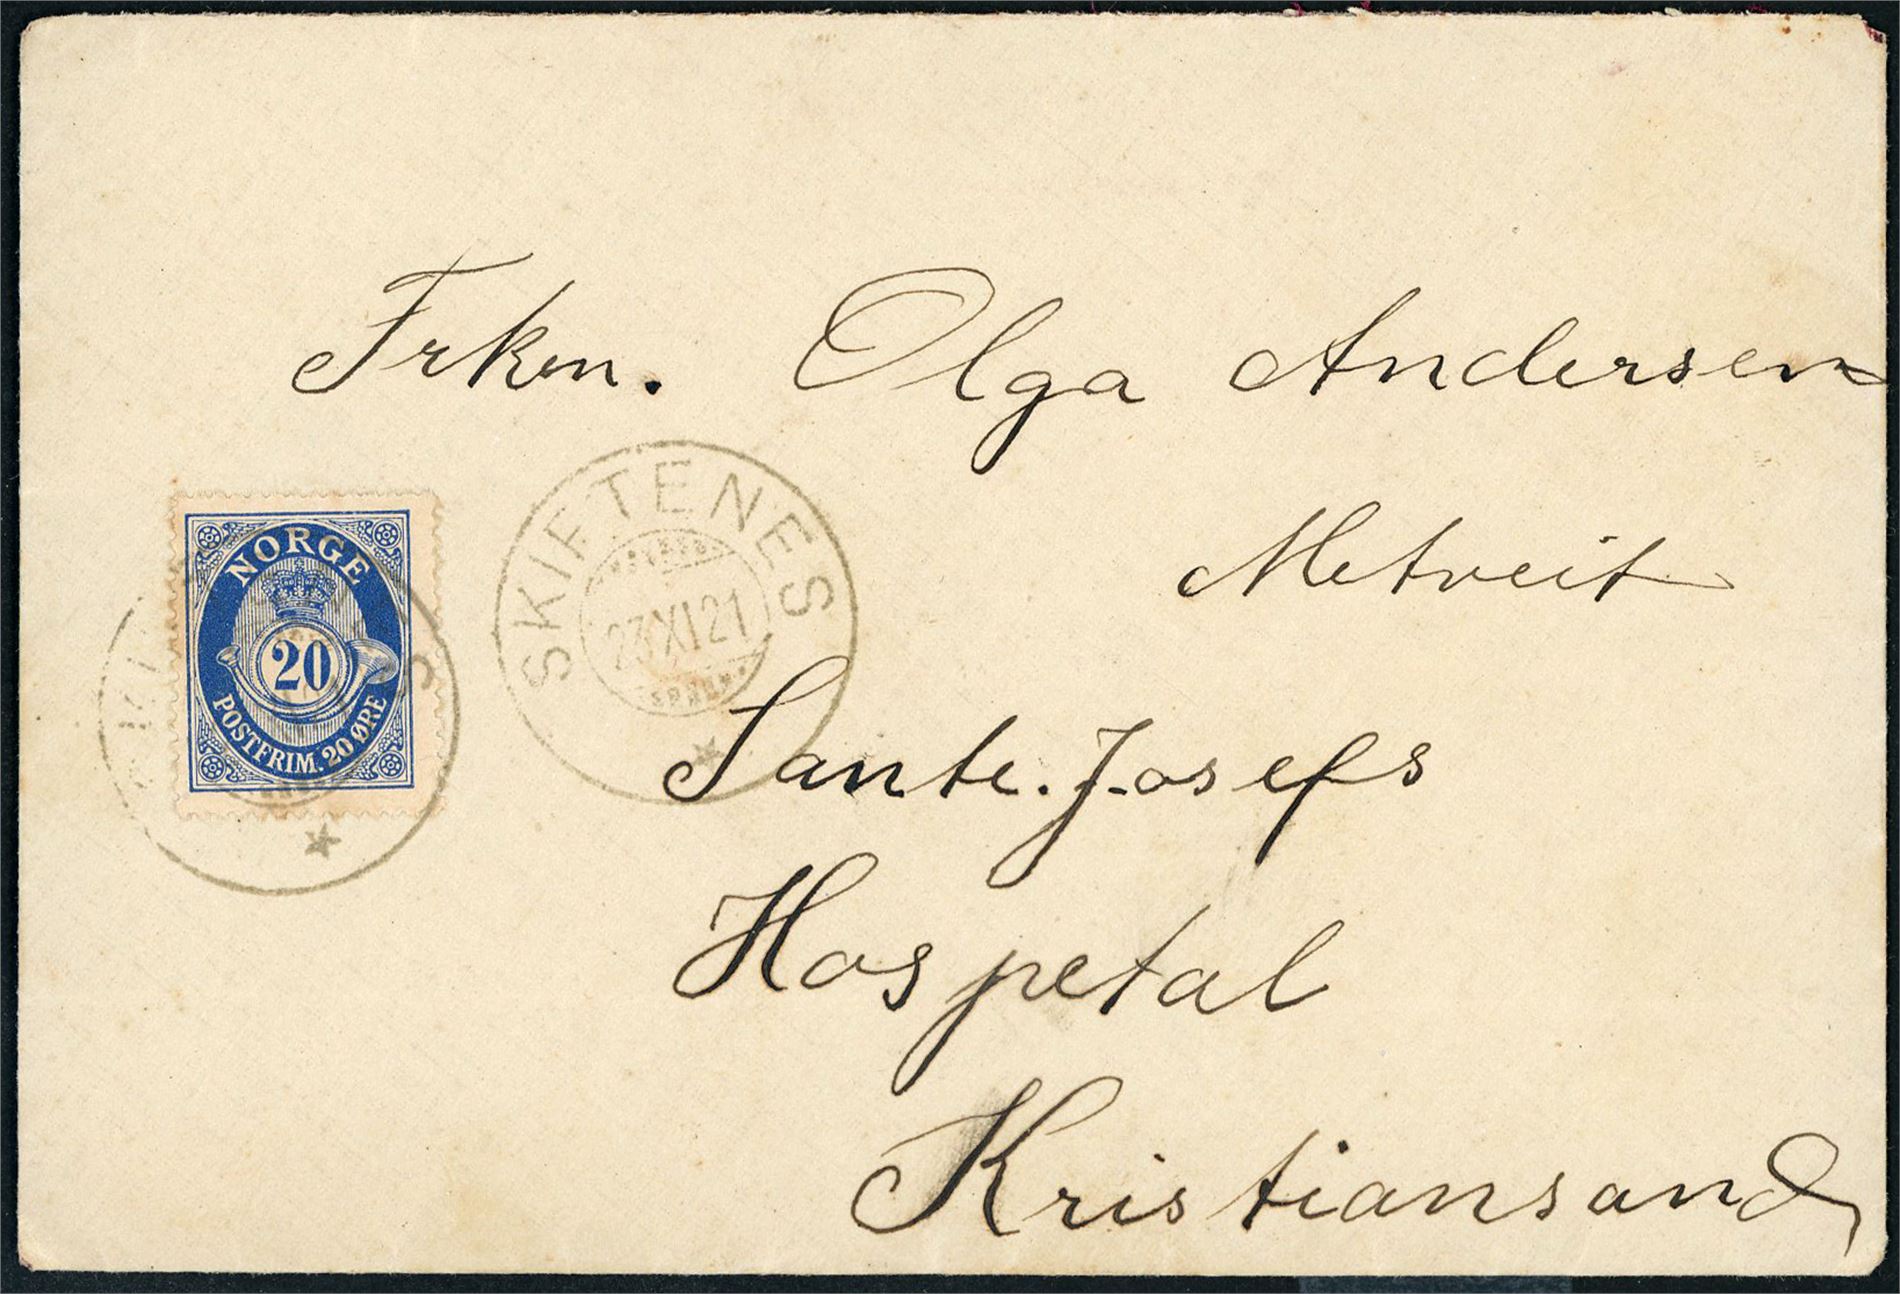 Frkn. Olga Andersen
Metveit
SKIFTENES
23 XI 21
NORGE
20
POSTFRIM. 20 ØRE
Sante. Josefs
Hospetal
Kristiansand